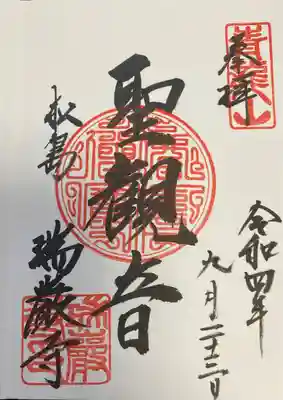 奉拝
令和四年
九月二十三日
聖観音
松島
瑞巌寺